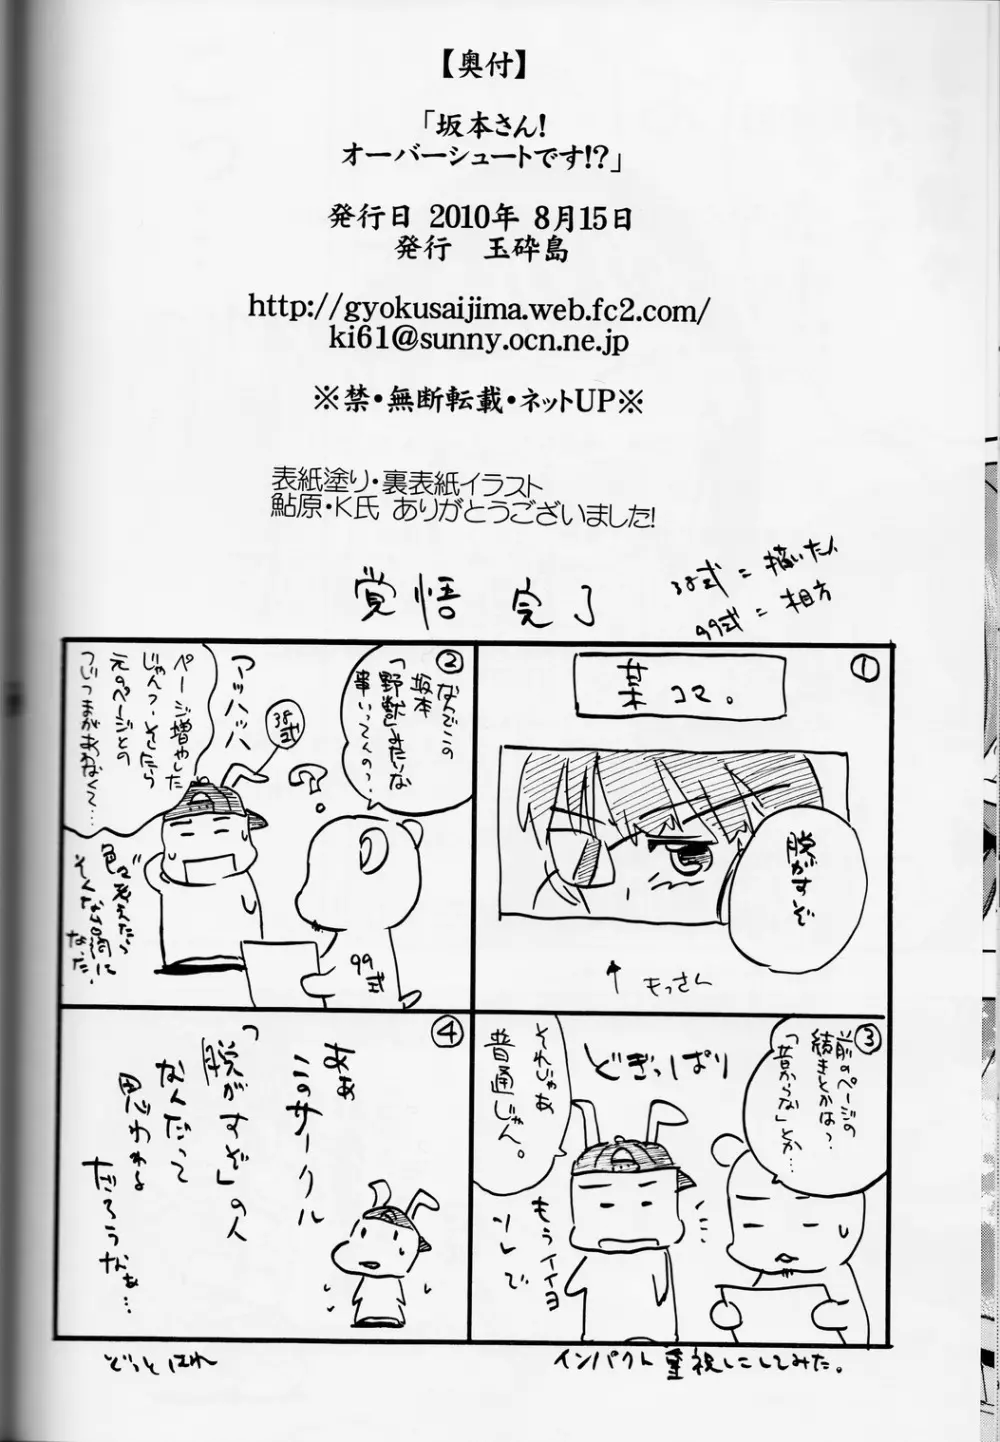 【奥付】
「坂本さん!
オーバーシュートです!?」
発行日 2010年 8月15日
発行 玉砕島
http://gyokusaijima.web.fc2.com/
ki61@sunny.ocn.ne.jp
※禁・無断転載・ネットUP※
表紙塗り・裏表紙イラスト
鮎原・K氏 ありがとうございました!
38式=描いた人
99式=相方
覚悟 完了
①
某コマ。
脱がすぞ
↑
もっさん
②
なんでこの
坂本
「野獣」みたいな
事いってんの?
38式
アッハッハ
ページ増やした
じゃんか、そしたら
元のページとの
つじつまがあわなくて…
色々考えたら
そんな台詞に
なった。
99式
③
前のページの
続きとかは?
「昔からな」とか…
どぎっぱり
それじゃあ
普通じゃん。
もうイイヨ
ソレで
④
ああ
このサークル
「脱がすぞ」の人
なんだって
思われる
だろうなぁ…
インパクト重視にしてみた。
どっとはれ